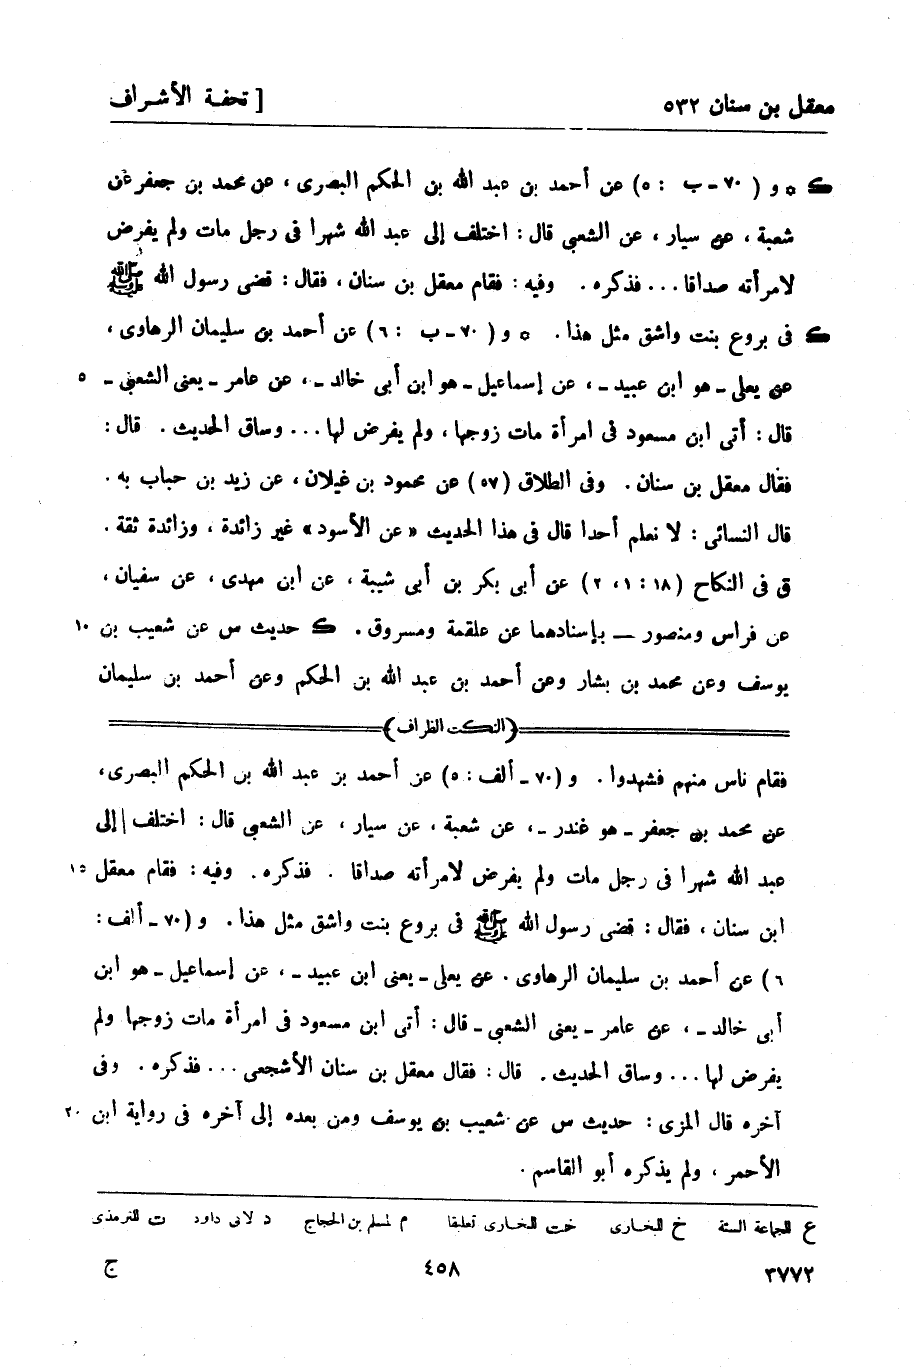 معقل بن سنان ٥٣٢ [ تحفة الأشراف
ك * و ( ٧٠ ـ ب : ٥) عن أحمد بن عبد الله بن الحكم البصرى ، عن محمد بن جعفر عن
شعبة ، عن سيار ، عن الشعبي قال : اختلف إلى عبد الله شهرا فى رجل مات ولم يفرض
لامرأته صداقا ... فذكره . وفيه : فقام معقل بن سنان ، فقال : قضى رسول الله ﷺ
ك فى بروع بنت واشق مثل هذا . * و ( ٧٠ ـ ب : ٦) عن أحمد بن سليمان الرهاوى ،
عن يعلى ـ هو ابن عبيد ـ ، عن إسماعيل ـ هو ابن أبى خالد ـ ، عن عامر ـ يعنى الشعبى ـ ٥
قال : أتى ابن مسعود فى امرأة مات زوجها ، ولم يفرض لها ... وساق الحديث . قال :
فقال معقل بن سنان . وفى الطلاق (٥٧) عن محمود بن غيلان ، عن زيد بن حباب به .
قال النسائى : لا نعلم أحدا قال فى هذا الحديث «عن الأسود» غير زائدة ، وزائدة ثقة .
ق فى النكاح (١٨ : ١، ٢) عن أبى بكر بن أبى شيبة ، عن ابن مهدى ، عن سفيان ،
عن فراس ومنصور ــ بإسنادهما عن علقمة ومسروق . ك حديث س عن شعيب بن ١٠
يوسف وعن محمد بن بشار وعن أحمد بن عبد الله بن الحكم وعن أحمد بن سليمان
(النكت الظراف)
فقام ناس منهم فشهدوا . و (٧٠ ـ ألف : ٥) عن أحمد بن عبد الله بن الحكم البصرى ،
عن محمد بن جعفر ـ هو غندر ـ ، عن شعبة ، عن سيار ، عن الشعبي قال : اختلف إلى
عبد الله شهرا فى رجل مات ولم يفرض لامرأته صداقا . فذكره . وفيه : فقام معقل ١٥
ابن سنان ، فقال : قضى رسول الله ﷺ فى بروع بنت واشق مثل هذا . و (٧٠ ـ ألف :
٦) عن أحمد بن سليمان الرهاوى . عن يعلى ـ يعنى ابن عبيد ـ ، عن إسماعيل ـ هو ابن
أبى خالد ـ ، عن عامر ـ يعنى الشعبى ـ قال : أتى ابن مسعود فى امرأة مات زوجها ولم
يفرض لها ... وساق الحديث . قال : فقال معقل بن سنان الأشجعى ... فذكره . وفى
آخره قال المزى : حديث س عن شعيب بن يوسف ومن بعده إلى آخره فى رواية ابن ٢٠
الأحمر ، ولم يذكره أبو القاسم .
ع للجماعة الستة خ للبخارى خت للبخارى تعليقا م لمسلم بن الحجاج د لابى داود ت للترمذى
٣٧٧٢ ٤٥٨ ج